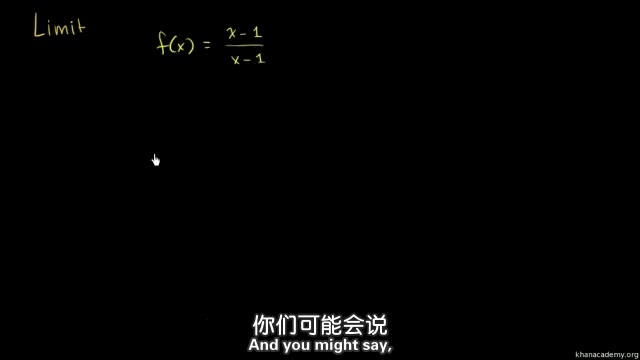 Limit
f(x) = x-1 / x-1
你们可能会说
And you might say,
khanacademy.org